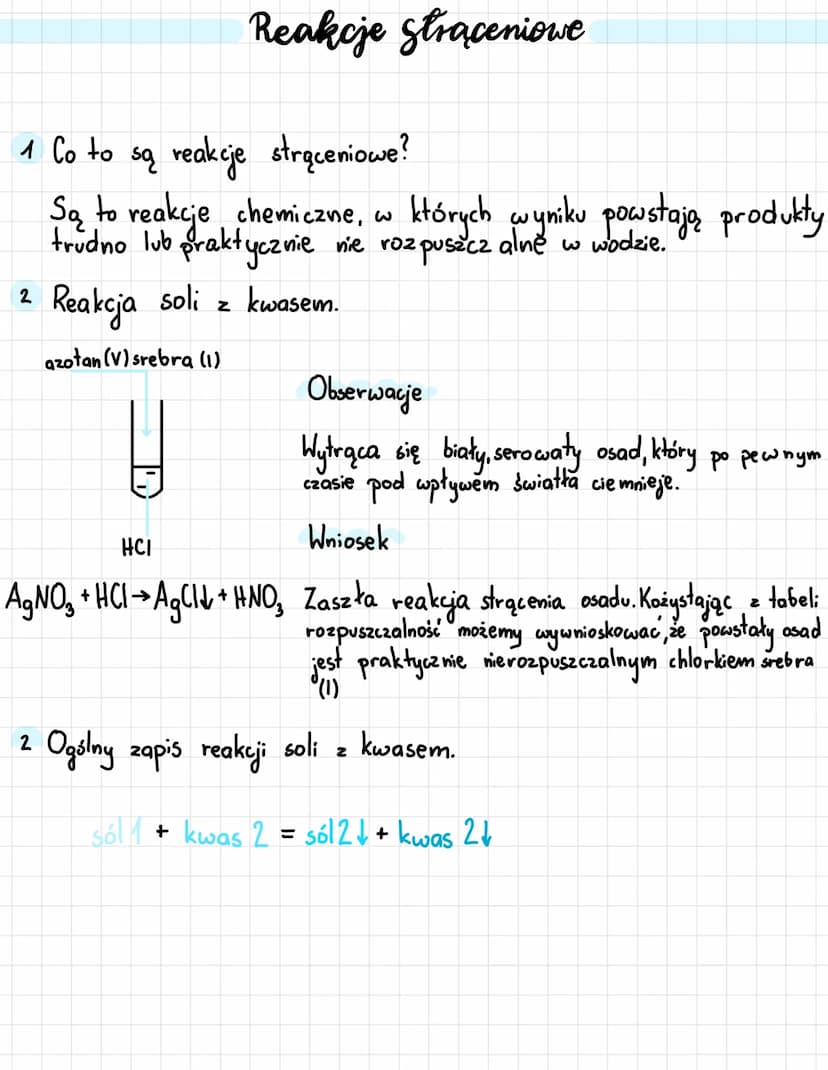 Reakcje strąceniowe
1 Co to są reakcje strąceniowe?
Są to reakcje chemiczne, w których wyniku powstają produkty
trudno lub praktycznie nie rozpuszczalne w wodzie.
2 Reakcja soli z kwasem.
azotan(V) srebra (I)
Obserwacje
Wytrąca się biały, serowaty osad, który po pewnym
czasie pod wpływem światła ciemnieje.
HCl
Wniosek
AgNO₃ + HCl → AgCl↓ + HNO₃
Zaszła reakcja strącenia osadu. Kożystając z tabeli
rozpuszczalność możemy wywnioskować, że powstały osad
jest praktycznie nierozpuszczalnym chlorkiem srebra
(I)
2 Ogólny zapis reakcji soli z kwasem.
sól 1 + kwas 2 = sól 2↓ + kwas 2↓